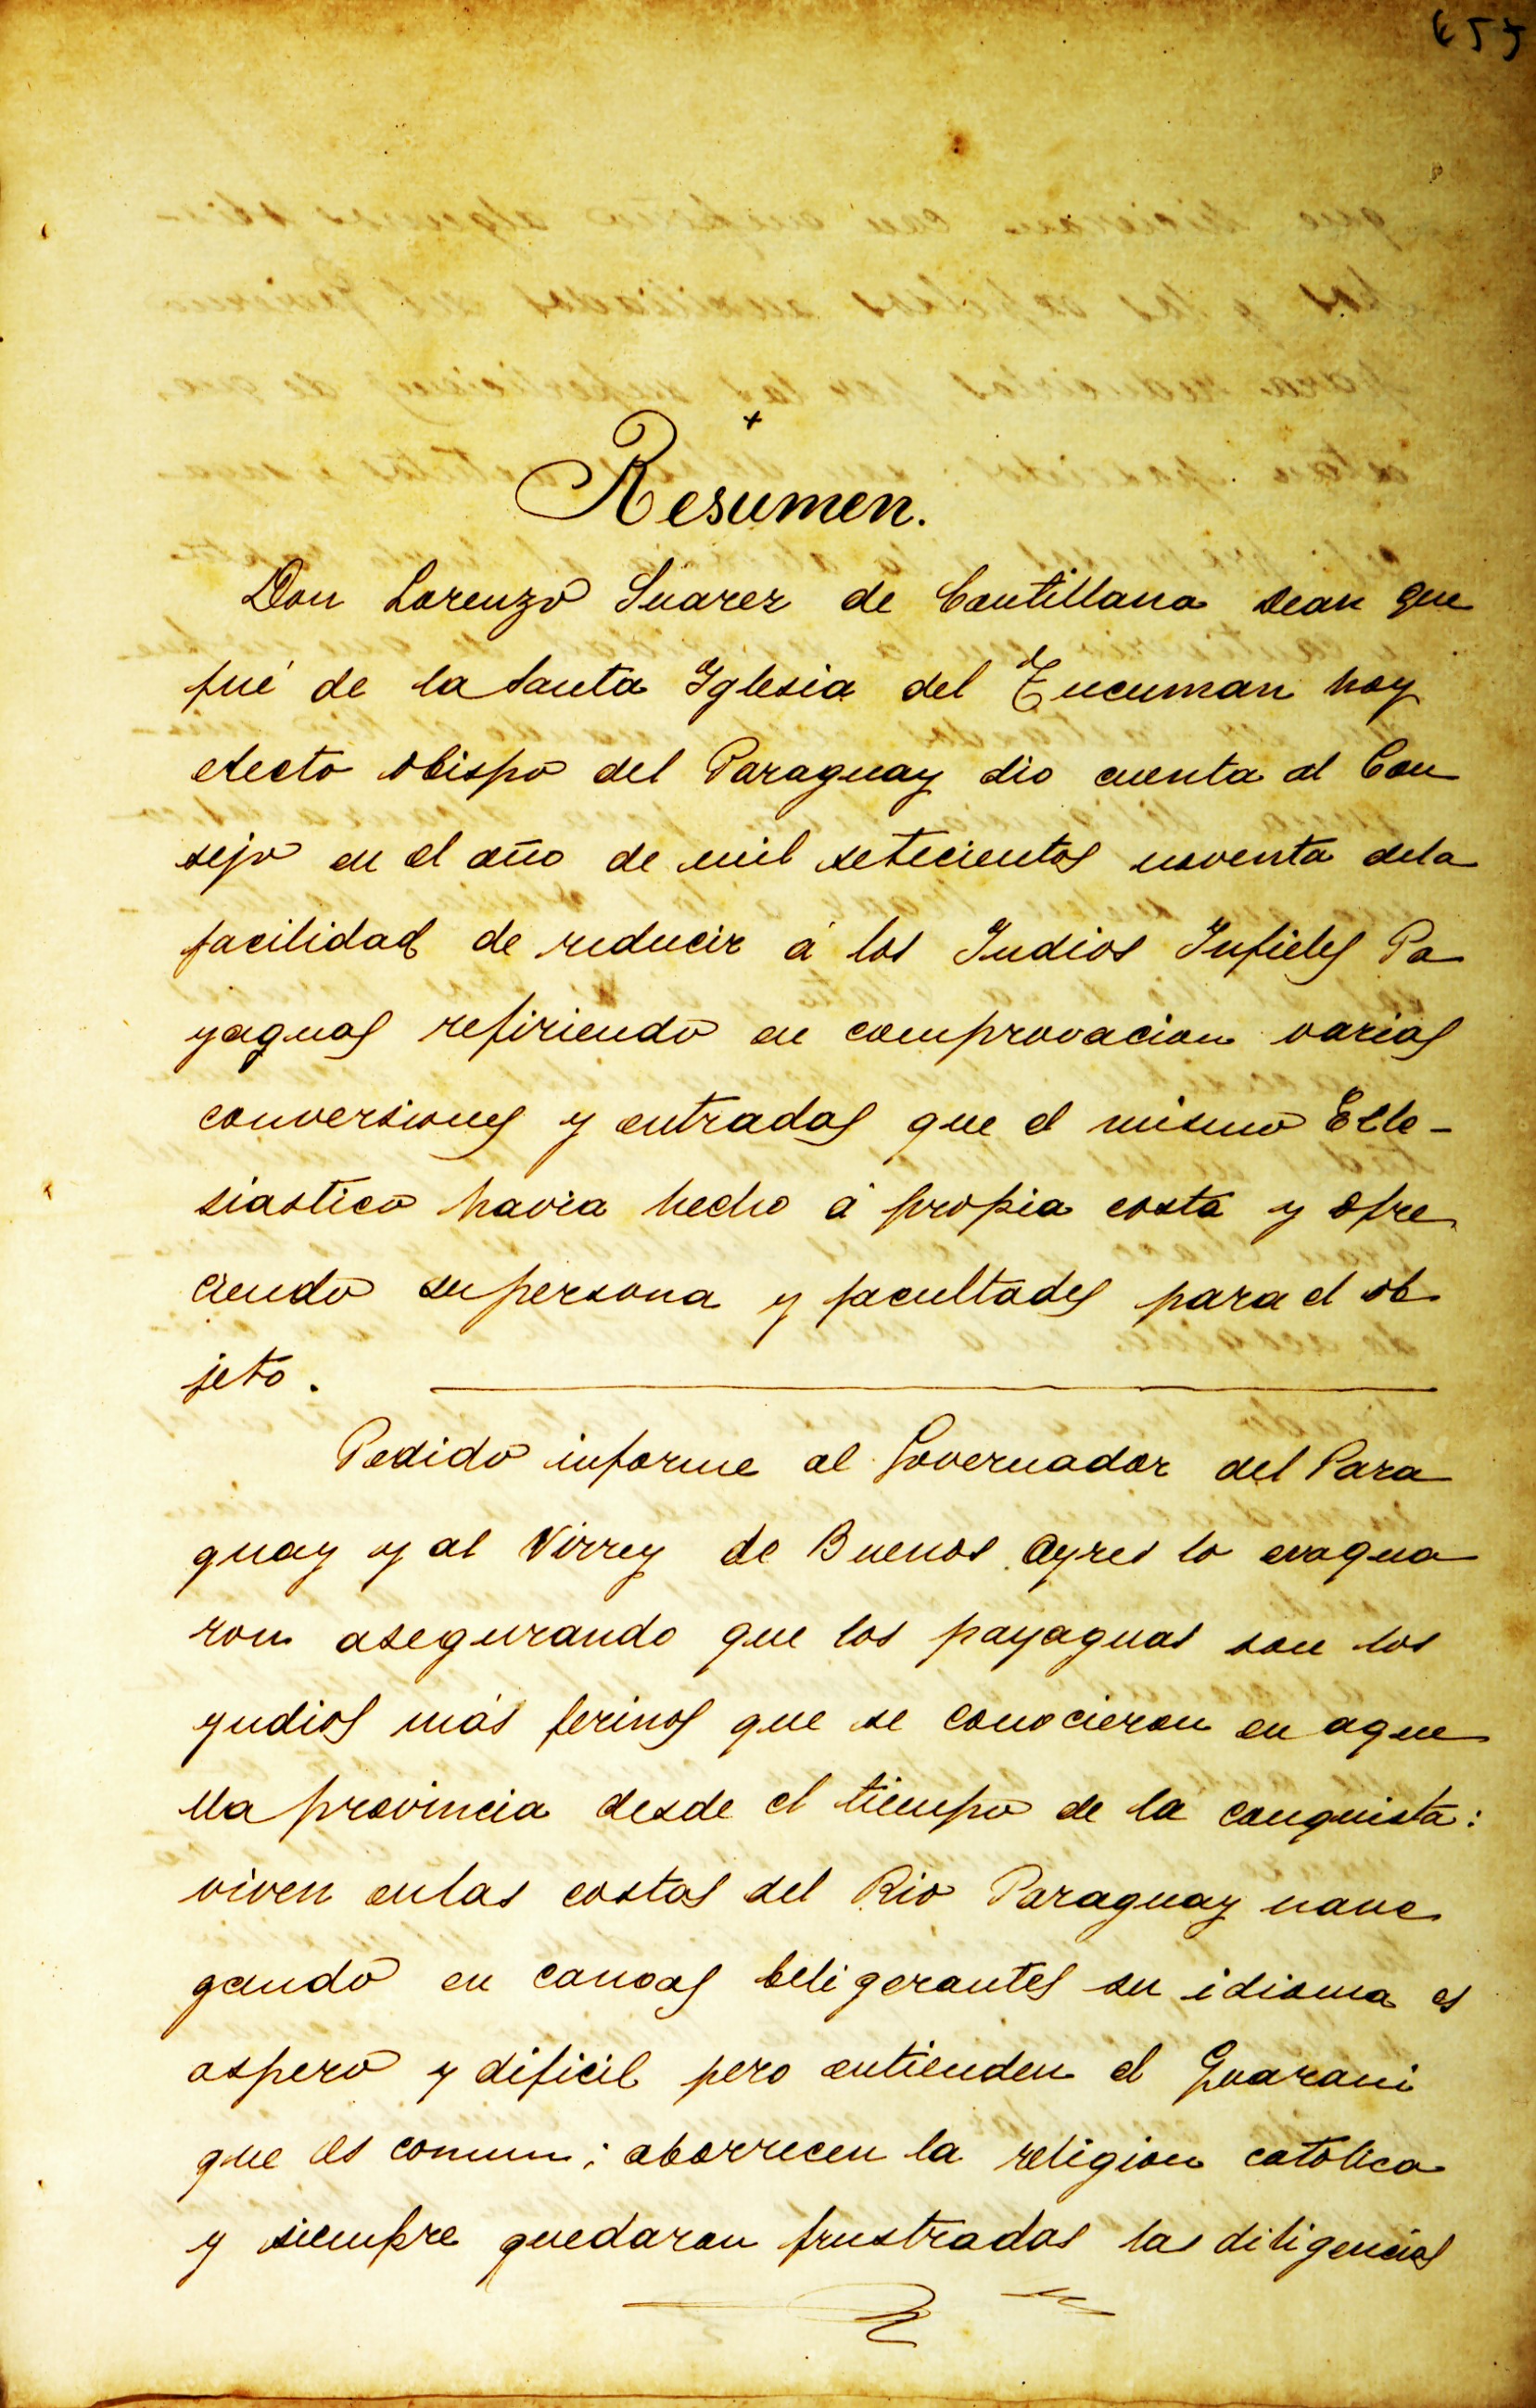 +
Resumen.
Don Lorenzo Suarez de Cantillana dean que
fué de la Santa Yglesia del Tucuman hoy
electo obispo del Paraguay dio cuenta al Con
sejo en el año de mil setecientos noventa dela
facilidad de reducir á los Indios Infieles Pa
yaguas refiriendo en comprovacion varias
conversiones y entradas que el mismo Ecle-
siastico havia hecho á propia costa y ofre
ciendo su persona y facultades para el ob
jeto.
Pedido informe al Governador del Para
guay y al Virrey de Buenos Ayres lo evagua
ron asegurando que los payaguas son los
yndios más ferinos que se conocieron en aque
lla provincia desde el tiempo de la conquista:
viven enlas costas del Rio Paraguay nave
gando en canoas beligerantes su idioma es
aspero y dificil pero entienden el Guarani
que es comun; aborrecen la religion catolica
y siempre quedaron frustradas las diligencias